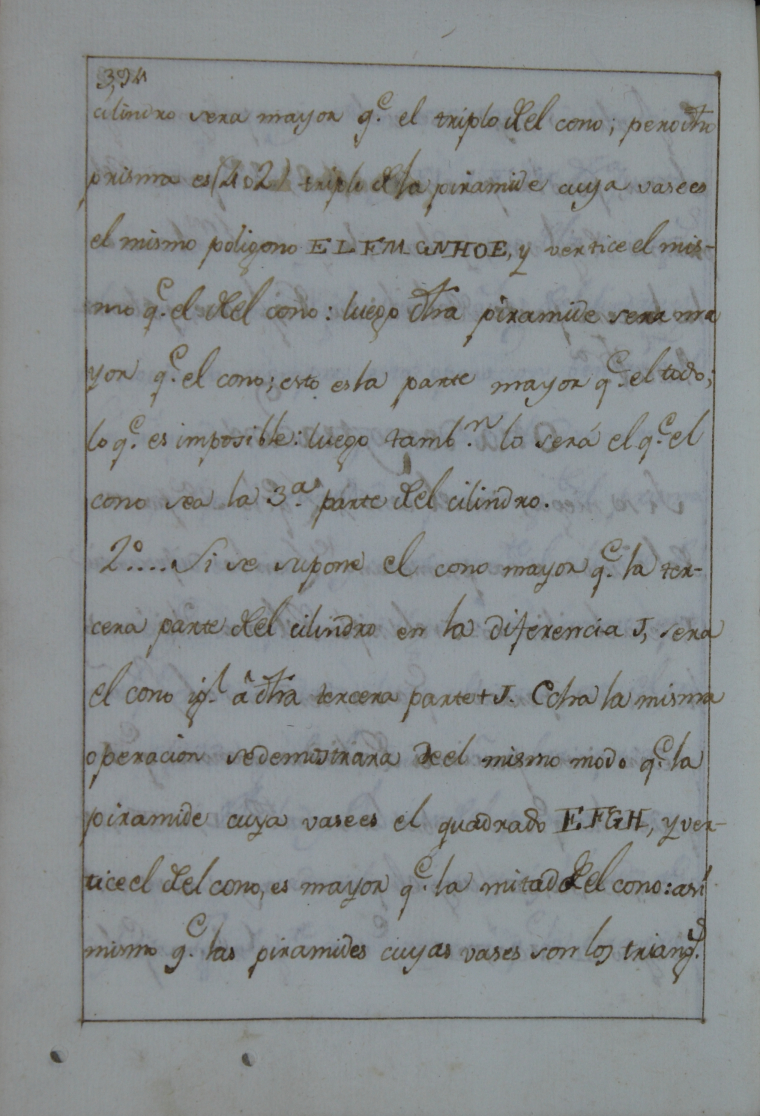 394
cilindro sera mayor q.e el triplo del cono; pero dho
prisma es (402) triplo de la piramide cuya vase es
el mismo poligono ELFMGNHOE, y vertice el mis-
mo q.e el del cono: luego dha piramide sera ma
yor q.e el cono; esto es la parte mayor q.e el todo;
lo q.e es imposible: luego tamb.n lo será el q.e el
cono sea la 3.a parte del cilindro.
2º.... Si se supone el cono mayor q.e la ter-
cera parte del cilindro en la diferencia J, sera
el cono ig.l â dha tercera parte + J. Echa la misma
operacion se demostrara de el mismo modo q.e la
piramide cuya vase es el quadrado EFGH, y ver-
tice el del cono, es mayor q.e la mitad del cono: así
mismo q.e las piramides cuyas vases son los triang.s